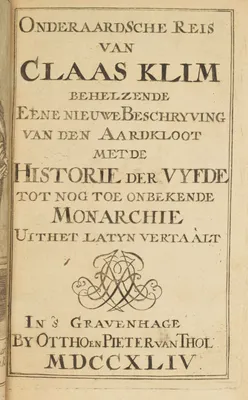 ONDERAARDSCHE REIS
VAN
CLAAS KLIM
BEHELZENDE
EENE NIEUWE BESCHRYVING
VAN DEN AARDKLOOT
MET DE
HISTORIE DER VYFDE
TOT NOG TOE ONBEKENDE
MONARCHIE
UIT HET LATYN VERTAALT
IN 'S GRAVENHAGE
BY OTTHO EN PIETER VAN THOL
MDCCXLIV.